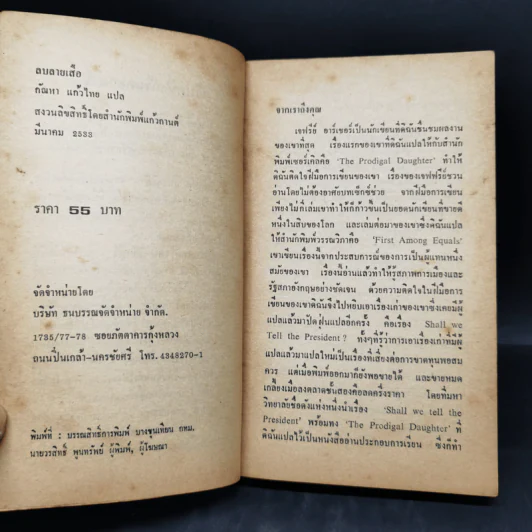 ลบลายเสือ
กัณหา แก้วไทย แปล
สงวนลิขสิทธิ์โดยสำนักพิมพ์แก้วกานต์
มีนาคม 2533
ราคา 55 บาท
จัดจำหน่ายโดย
บริษัท ธนบรรณจัดจำหน่าย จำกัด.
1735/77-78 ซอยภัตตาคารกุ้งหลวง
ถนนปิ่นเกล้า-นครชัยศรี โทร. 4348270-1
พิมพ์ที่ : บรรณสิทธิ์การพิมพ์ บางขุนเทียน กทม.
นายวรสิทธิ์ พูนทรัพย์ ผู้พิมพ์, ผู้โฆษณา
จากเราถึงคุณ
เจฟรีย์ อาร์เชอร์เป็นนักเขียนที่ดิฉันชื่นชมผลงาน
ของเขาที่สุด เรื่องแรกของเขาที่ดิฉันแปลให้กับสำนัก
พิมพ์เซอร์เคิลคือ 'The Prodigal Daughter' ทำให้
ดิฉันติดใจฝีมือการเขียนของเขา เรื่องของเจฟฟรีย์ชวน
อ่านโดยไม่ต้องอาศัยบทเซ็กซ์ช่วย จากฝีมือการเขียน
เพียงไม่กี่เล่มเขาทำให้ก้าวขึ้นเป็นยอดนักเขียนที่ขายดี
หนึ่งในสิบของโลก และเล่มต่อมาของเขาซึ่งดิฉันแปล
ให้สำนักพิมพ์วรรณวิภาคือ 'First Among Equals'
เขาเขียนเรื่องนี้จากประสบการณ์ของการเป็นผู้แทนหนึ่ง
สมัยของเขา เรื่องนี้อ่านแล้วทำให้รู้สภาพการเมืองและ
รัฐสภาอังกฤษอย่างชัดเจน ด้วยความติดใจในฝีมือการ
เขียนของเขาดิฉันจึงไปหยิบเอาเรื่องเก่าของเขาซึ่งเคยมีผู้
แปลแล้วมาปัดฝุ่นแปลอีกครั้ง คือเรื่อง Shall we
Tell the President? ทั้งๆที่รู้ว่าการเอาเรื่องเก่าที่มีผู้
แปลแล้วมาแปลใหม่เป็นเรื่องที่เสี่ยงต่อการขาดทุนพอสม
ควร แต่เมื่อพิมพ์ออกมาก็ยังพอขายได้ และขายหมด
เกลี้ยงเมื่อลงตลาดชั้นสองคือลดครึ่งราคา โดยที่มหา
วิทยาลัยชื่อดังแห่งหนึ่งนำเรื่อง 'Shall we tell the
President' พร้อมทั้ง 'The Prodigal Daughter' ที่
ดิฉันแปลไว้เป็นหนังสืออ่านประกอบการเรียน ซึ่งก็ทำ